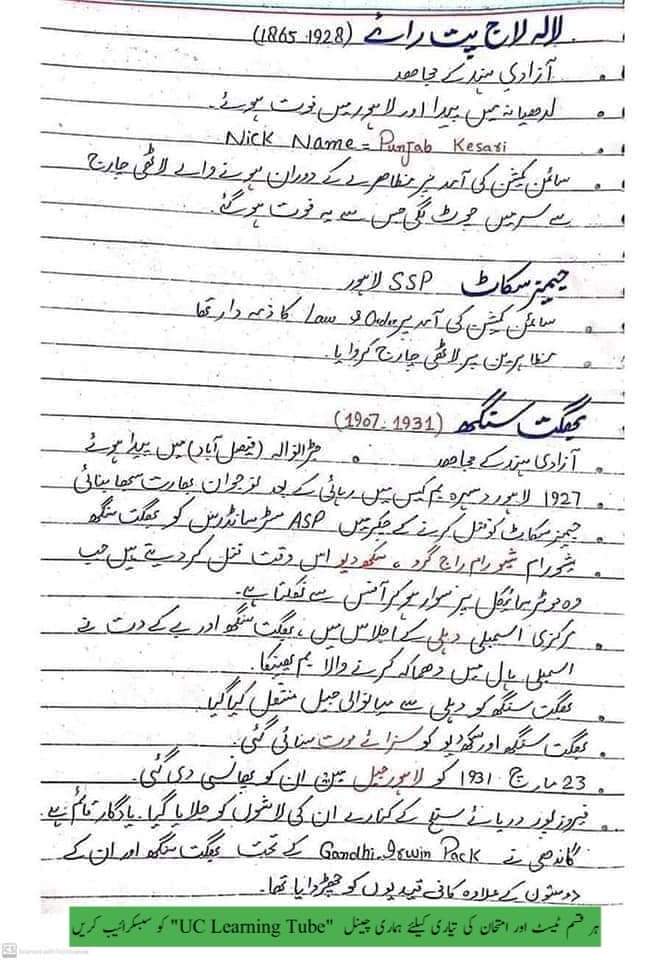 لالہ لاج پت رائے (1865-1928)
آزادی ہند کے مجاہد
لدھیانہ میں پیدا اور لاہور میں فوت ہوئے۔
Nick Name = Punjab Kesari
سائمن کمیشن کی آمد پر مظاہرے کے دوران ہونے والے لاٹھی چارج
سے سر میں چوٹ لگی جس سے یہ فوت ہو گئے۔
جیمز سکاٹ SSP لاہور
سائمن کمیشن کی آمد پر Law & Order کا ذمہ دار تھا
مظاہرین پر لاٹھی چارج کروایا۔
بھگت سنگھ (1907-1931)
آزادی ہند کے مجاہد • جڑانوالہ (فیصل آباد) میں پیدا ہوئے
1927 لاہور دسہرہ بم کیس میں رہائی کے بعد نوجوان بھارت سبھا بنائی
جیمز سکاٹ کو قتل کرنے کے چکر میں ASP سانڈرس کو بھگت سنگھ
شیورام راج گرو، سکھ دیو اس وقت قتل کر دیتے ہیں جب
وہ موٹر سائیکل پر سوار ہو کر آفس سے نکلتا ہے۔
مرکزی اسمبلی دہلی کے اجلاس میں، بھگت سنگھ اور بے کے دت نے
اسمبلی ہال میں دھماکہ کرنے والا بم پھینکا۔
بھگت سنگھ کو دہلی سے میانوالی جیل منتقل کیا گیا
بھگت سنگھ اور سکھ دیو کو سزائے موت سنائی گئی۔
23 مارچ 1931 کو لاہور جیل میں ان کو پھانسی دی گئی۔
فیروز پور دریائے ستلج کے کنارے ان کی لاشوں کو جلایا گیا۔ یادگار قائم ہے
گاندھی نے Gandhi-Irwin Pack کے تحت بھگت سنگھ اور ان کے
دوستوں کے علاوہ کافی قیدیوں کو چھڑوایا تھا۔
ہر قسم ٹیسٹ اور امتحان کی تیاری کیلئے ہماری چینل "UC Learning Tube" کو سبسکرائیب کریں